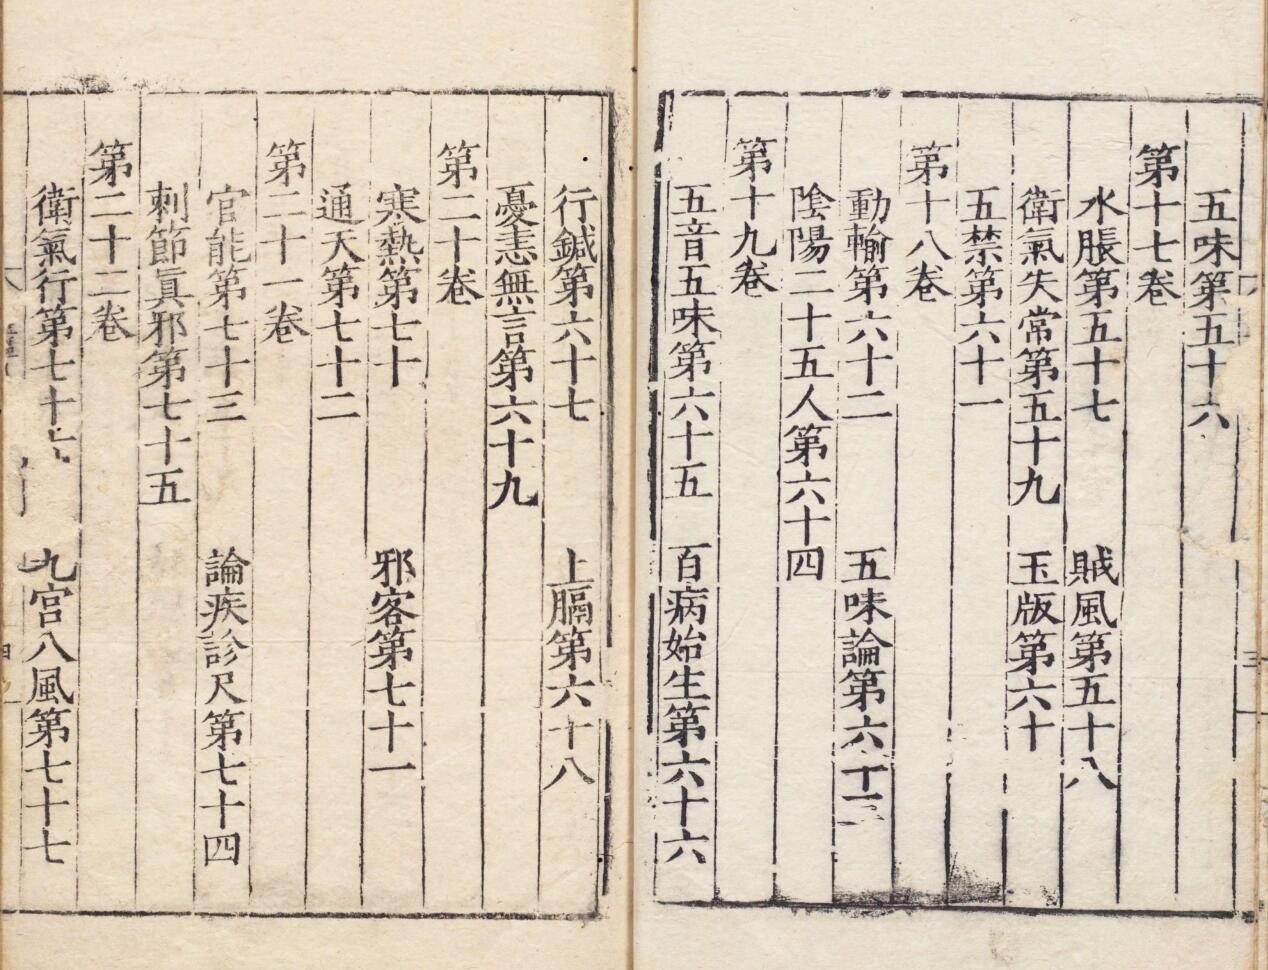 五味第五十六
第十七卷
水脹第五十七　賊風第五十八
衛氣失常第五十九　玉版第六十
五禁第六十一
第十八卷
動輸第六十二　五味論第六十三
陰陽二十五人第六十四
第十九卷
五音五味第六十五　百病始生第六十六
行鍼第六十七　上膈第六十八
憂恚無言第六十九
第二十卷
寒熱第七十　邪客第七十一
通天第七十二
第二十一卷
官能第七十三　論疾診尺第七十四
刺節眞邪第七十五
第二十二卷
衛氣行第七十六　九宮八風第七十七